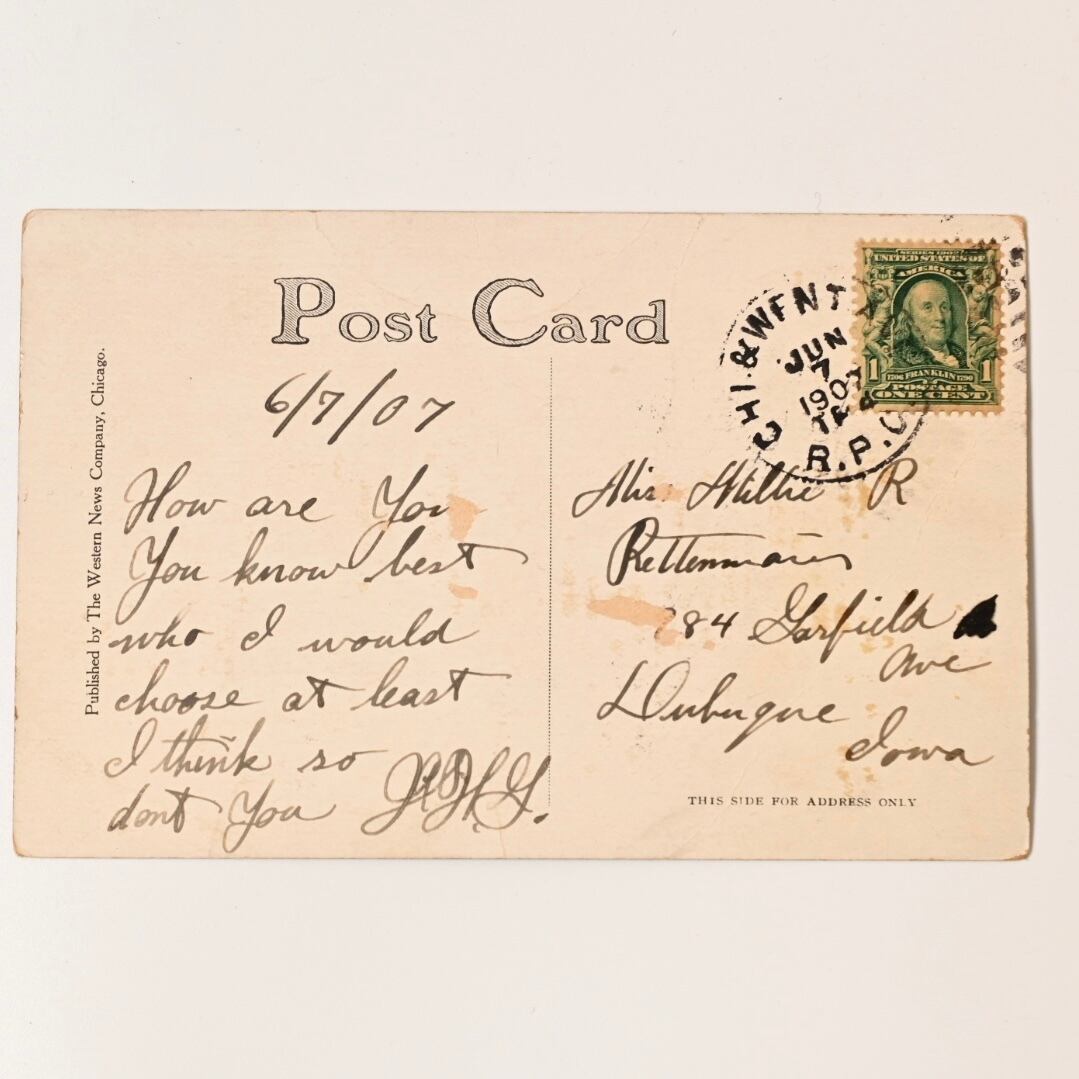 Post Card
Published by The Western News Company, Chicago.
6/7/07
How are You
You know best
who I would
choose at least
I think so
dont You
SERIES 1902
UNITED STATES OF
AMERICA
1 1706 FRANKLIN 1790 1
POSTAGE
ONE CENT
CHI. & WENT
JUN
7
1907
R.P.O.
R
84 Garfield
Ave
Dubuque
Iowa
THIS SIDE FOR ADDRESS ONLY